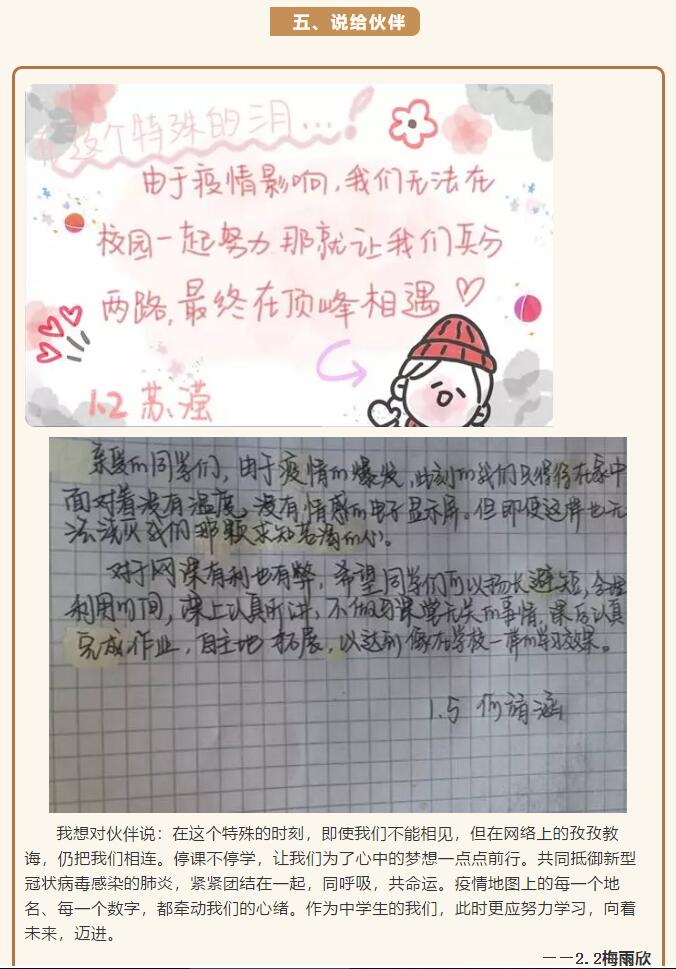 五、说给伙伴
在这个特殊的三月...!
由于疫情影响,我们无法在
校园一起努力 那就让我们兵分
两路,最终在顶峰相遇♡
1.2 苏滢
亲爱的同学们,由于疫情的爆发,此刻的我们只得待在家中
面对着没有温度、没有情感的电子显示屏。但即便这样也无
法浇灭我们那颗求知若渴的心。
对于网课有利也有弊,希望同学们可以扬长避短,合理
利用时间,课上认真听讲,不做与课堂无关的事情,课后认真
完成作业,自主地拓展,以达到像在学校一样的学习效果。
1.5 何
我想对伙伴说:在这个特殊的时刻,即使我们不能相见,但在网络上的孜孜教
诲,仍把我们相连。停课不停学,让我们为了心中的梦想一点点前行。共同抵御新型
冠状病毒感染的肺炎,紧紧团结在一起,同呼吸,共命运。疫情地图上的每一个地
名、每一个数字,都牵动我们的心绪。作为中学生的我们,此时更应努力学习,向着
未来,迈进。
——2.2梅雨欣